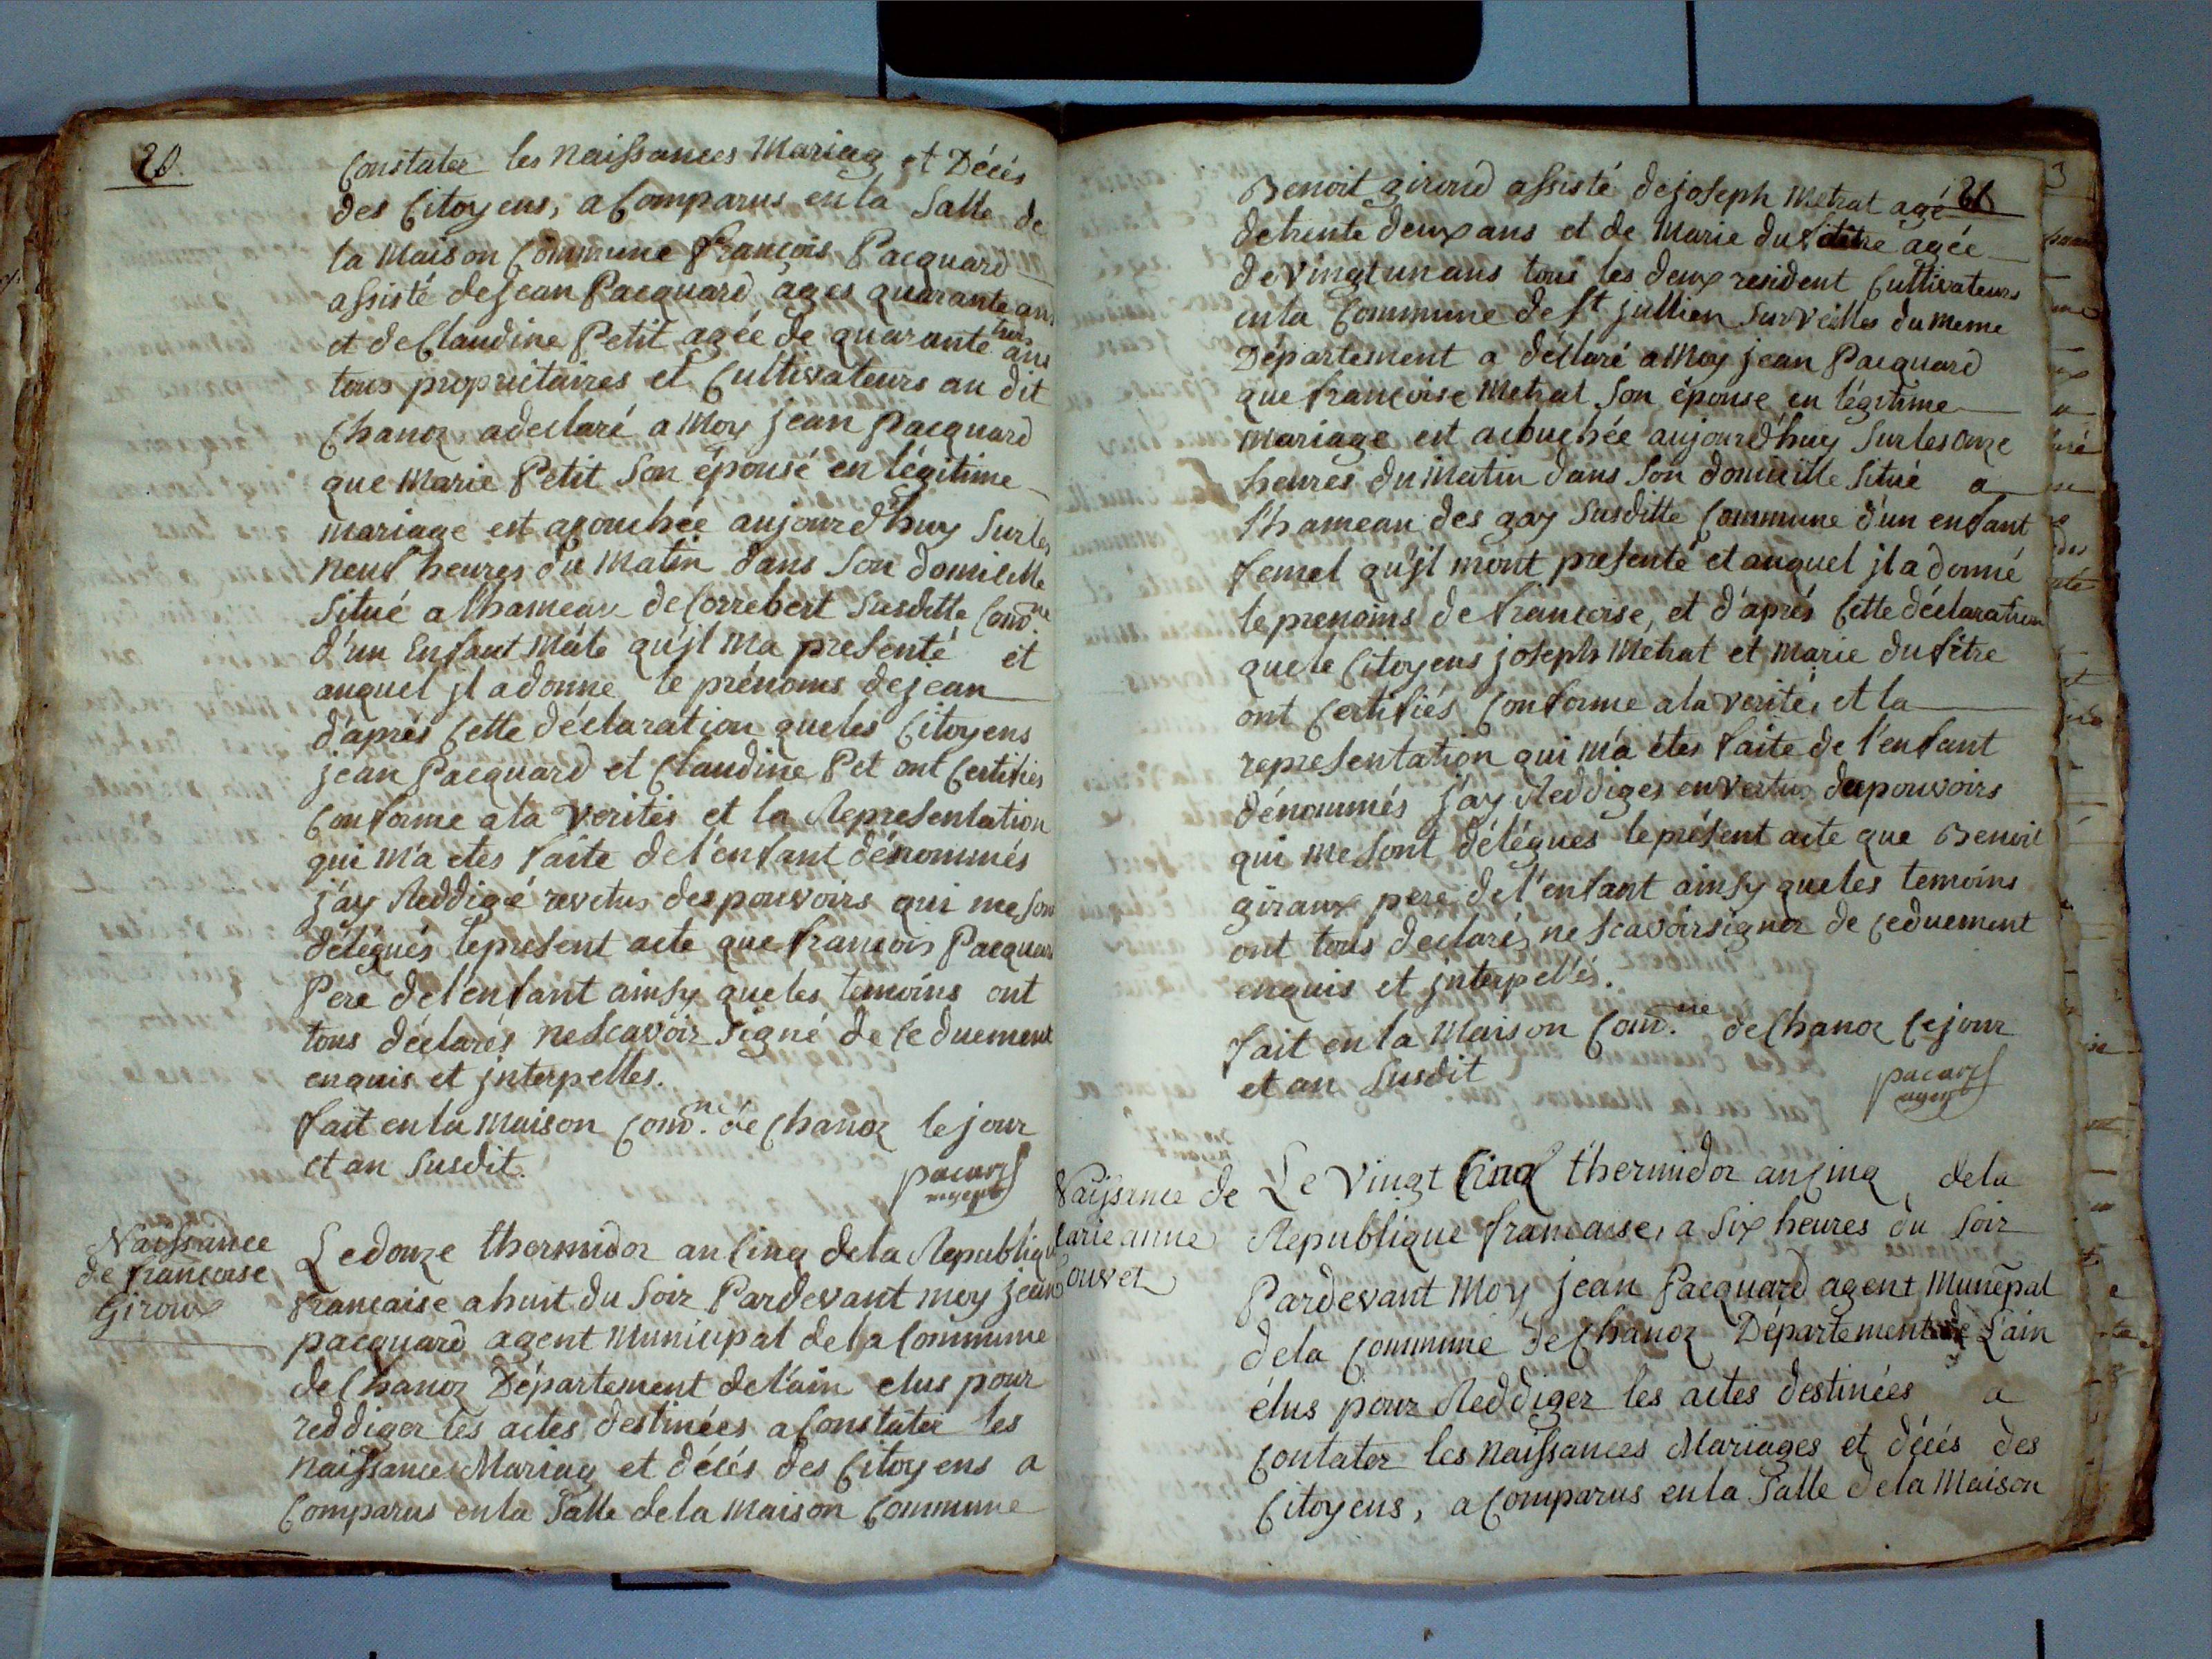 20.
Constater les naissances Mariag et Décés
des Citoyens, a Comparus en la Salle de
la Maison Commune françois Pacquard
assisté de jean Pacquard ages quarante ans
et de Claudine Petit agée de quarante trois ans
tous proprietaires et Cultivateurs au dit
Chanoz a declaré a Moy jean Pacquard
que Marie Petit Son épousé en légitime
mariage est acouchée aujourd'huy Sur les
neuf heures du Matin dans Son domicille
Situé a lhameau de Correbert Susditte Com.ne
d'un Enfant Mâle qu'jl Ma presenté et
auquel jl a donne le prénoms de jean
d'aprés Cette déclaration que les Citoyens
jean Pacquard et Claudine Pet ont Certifies
Conforme a la verités et la Representation
qui m'a etes faite de l'enfant dénommés
j'ay Reddigé revetus des pouvoirs qui me Son
délégués le present acte que francois Pacquar
Pere de l'enfant ainsy que les temoins ont
tous déclarés ne Scavoir Signé de Ce duement
enquis et jnterpelles.
fait en la Maison Com.ne de Chanoz le jour
et an Susdit.
pacard
agent
Naissance
de francoise
Giroux
Le douze thermidor an Cinq de la Republiqu
francaise a huit du Soir Pardevant moy jean
pacquard agent Municipal de la Commune
de Chanoz Département de l'ain elus pour
reddiger les actes destinées a Constater les
naissances Mariag et décés des Citoyens a
Comparus en la Salle de la Maison Commune
21
Benoit giroud assisté de joseph Metrat agé
de trente deux ans et de Marie dufêtre agée
de vingt un ans tous les deux resident Cultivateurs
en la Commune de St jullien Sur veilles du meme
Département a déclaré a Moy jean Pacquard
que francoise Metrat Son épouse en légitime
mariage est acouchée aujourd'huy Sur les onze
heures du Matin dans Son domicille Situé a
l'hameau des gay Susditte Commune d'un enfant
femel qu'jl mont presenté et auquel jl a donné
le prenoms de francoise, et d'aprés Cette déclaration
que le Citoyens joseph Métrat et Marie dufêtre
ont Certifiés Conforme a la verités et la
representation qui m'a étes faite de l'enfant
dénommés j'ay Reddiges en vertus de pouvoirs
qui me Sont délégues le présent acte que Benoit
giraux pere de l'enfant ainsy que les temoins
ont tous declarés ne Scavoir signer de Ce duement
enquis et jnterpellés.
fait en la Maison Com.ne de Chanoz Ce jour
et an Susdit
pacard
agent
Naissance de
arie anne
ouvet
Le vingt Cinq thermidor an Cinq de la
Republique francaise, a Six heures du Soir
Pardevant Moy jean Pacquard agent Munepal
de la Commune de Chanoz Département de L'ain
élus pour Reddiger les actes destinées a
Contater les naissances Mariages et décés des
Citoyens, a Comparus en la Salle de la Maison